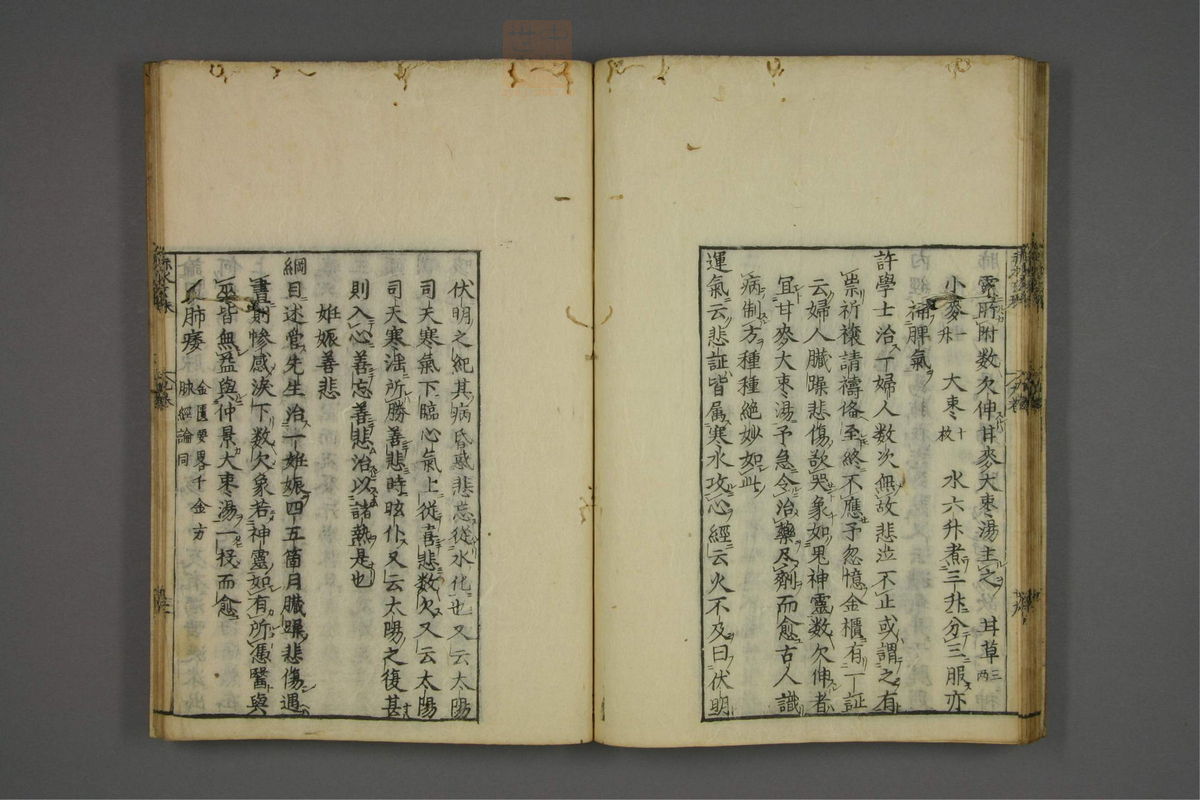 靈所附数欠伸甘麥大枣湯主之 甘草三两
小麥一升 大枣十枚 水六升煮三升分三服亦
補脾氣
許學士治一婦人数次無故悲泣不止或謂之有
祟祈禳請禱俻至終不應予忽憶金櫃有一証
云婦人臓躁悲傷欲哭象如鬼神靈数欠伸者
宜甘麥大枣湯予急令治藥尽劑而愈古人識
病制方種種絶妙如此
運氣云悲証皆属寒水攻心經云火不及曰伏明
伏明之紀其病昏惑悲忘從水化也又云太陽
司天寒氣下臨心氣上從善悲数欠又云太陽
司天寒淫所勝善悲時眩仆又云太陽之復甚
則入心善忘善悲治以諸熱是也
妊娠善悲
綱目述管先生治一妊娠四五箇月臓躁悲傷遇
晝則惨感淚下数欠象若神靈如有所憑醫與
巫皆無益與仲景大枣湯一投而愈
肺痿 金匱要畧千金方
脉經論同